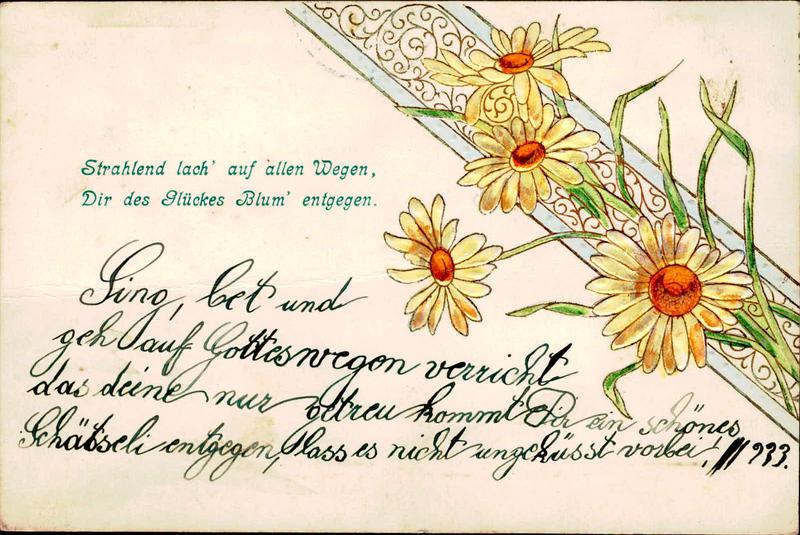 Strahlend lach' auf allen Wegen,
Dir des Glückes Blum' entgegen.
Sing, bet und
geh auf Gotteswegen verricht
das deine nur getreu kommt Dir ein schönes
Schätseli entgegen, lass es nicht ungeküsst vorbei!